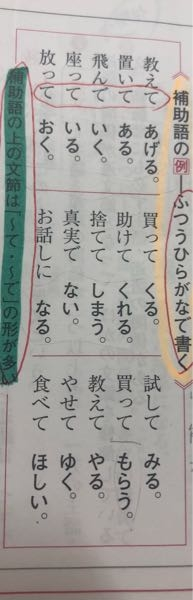 補助語の例―ふつうひらがなで書く
教えて あげる。 買って くる。 試して みる。
置いて ある。 助けて くれる。 買って もらう。
飛んで いく。 捨てて しまう。 教えて やる。
座って いる。 真実で ない。 やせて ゆく。
放って おく。 お話しに なる。 食べて ほしい。
補助語の上の文節は「〜て・〜で」の形が多い